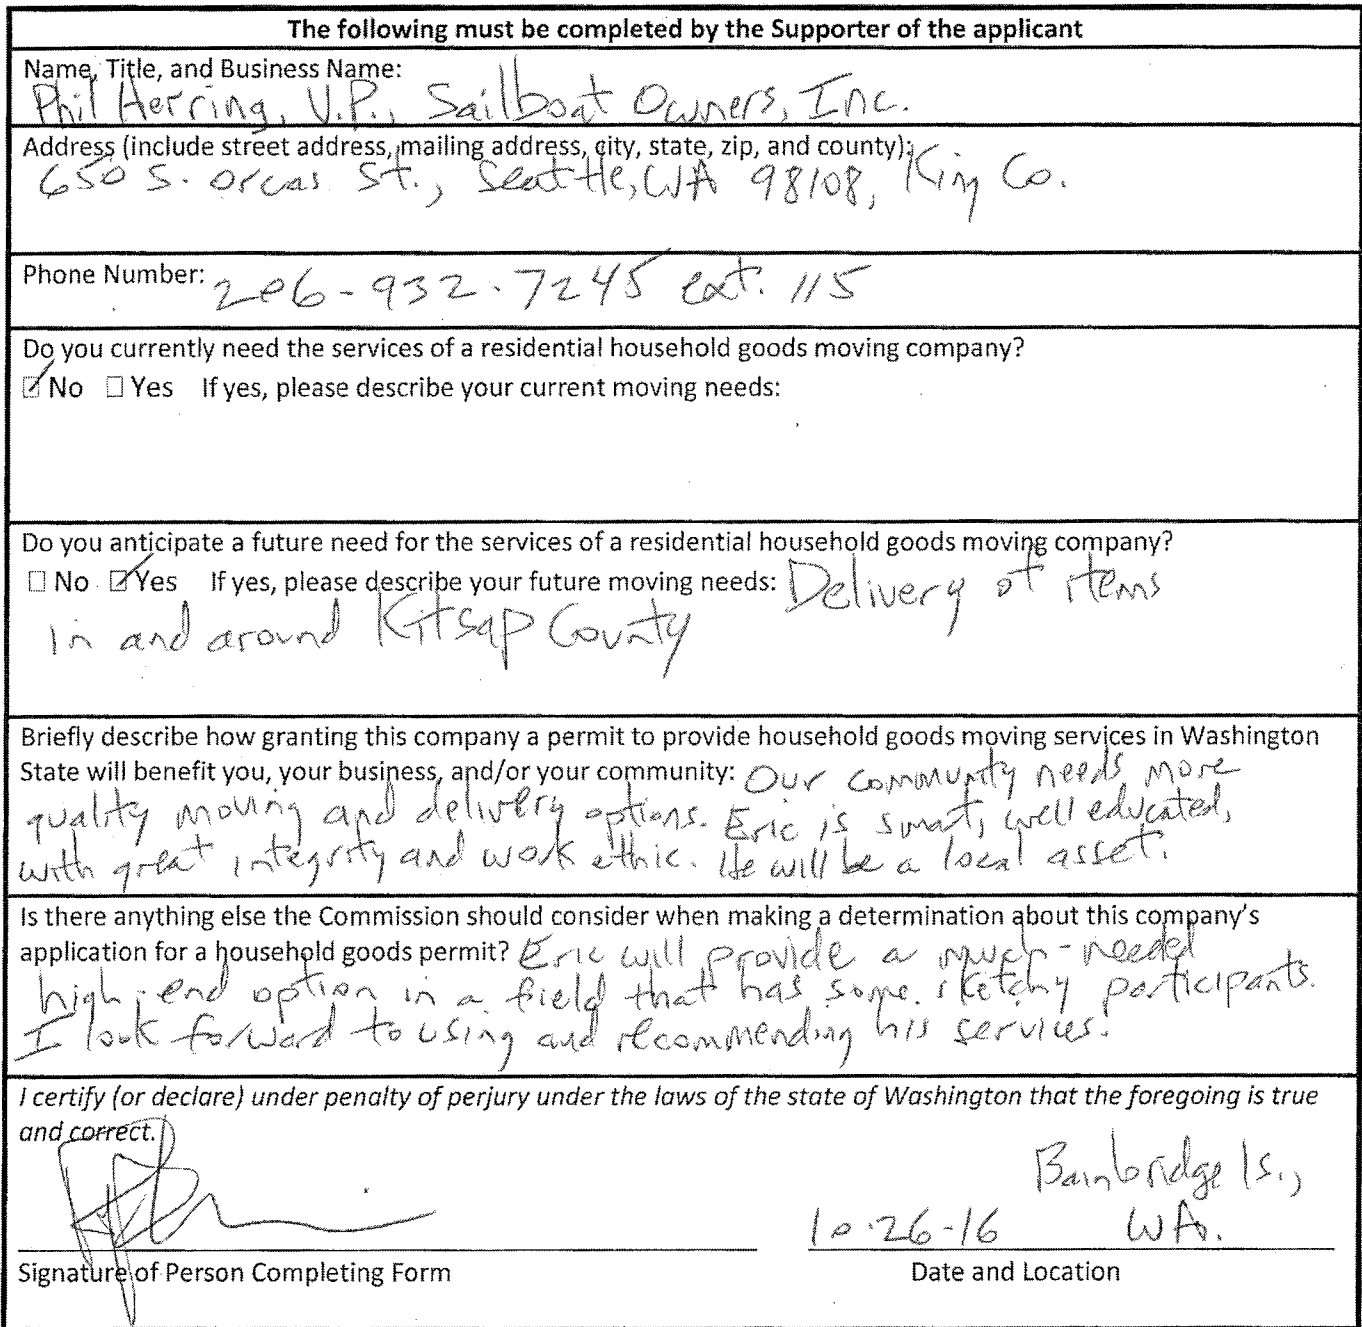 The following must be completed by the Supporter of the applicant
Name, Title, and Business Name:
Phil Herring, V.P., Sailboat Owners, Inc.
Address (include street address, mailing address, city, state, zip, and county):
650 S. Orcas St., Seattle, WA 98108, King Co.
Phone Number: 206-932-7245 ext. 115
Do you currently need the services of a residential household goods moving company?
☑ No ☐ Yes If yes, please describe your current moving needs:
Do you anticipate a future need for the services of a residential household goods moving company?
☐ No ☑ Yes If yes, please describe your future moving needs: Delivery of items
in and around Kitsap County
Briefly describe how granting this company a permit to provide household goods moving services in Washington
State will benefit you, your business, and/or your community: Our community needs more
quality moving and delivery options. Eric is smart, well educated,
with great integrity and work ethic. He will be a local asset.
Is there anything else the Commission should consider when making a determination about this company's
application for a household goods permit? Eric will provide a much-needed
high-end option in a field that has some sketchy participants.
I look forward to using and recommending his services.
I certify (or declare) under penalty of perjury under the laws of the state of Washington that the foregoing is true
and correct.
Bainbridge Is.,
10-26-16 WA.
Signature of Person Completing Form Date and Location